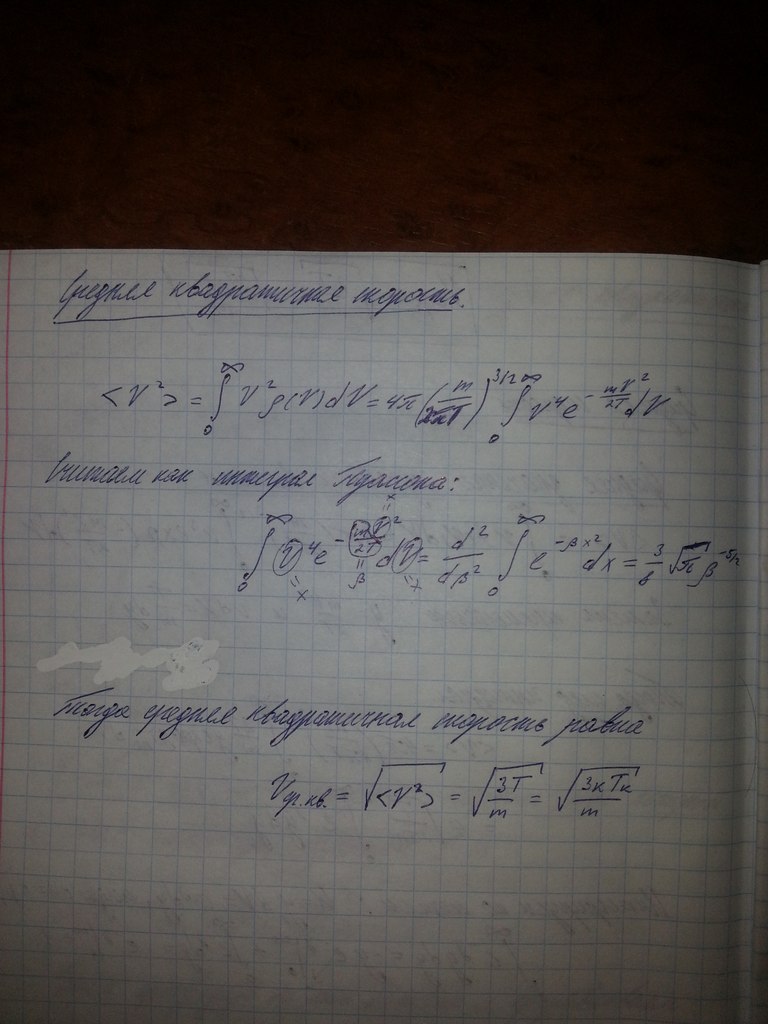 Средняя квадратичная скорость.
<V²> = ∫₀^∞ V² ρ(V) dV = 4π (m/2πT)^3/2 ∫₀^∞ V⁴ e^(-mV²/2T) dV
Считаем как интеграл Пуассона:
∫₀^∞ V⁴ e^(-mV²/2T) dV = d²/dβ² ∫₀^∞ e^(-βx²) dx = 3/8 √π β^(-5/2)
Тогда средняя квадратичная скорость равна
V ср.кв. = √<V²> = √(3T/m) = √(3кTк/m)